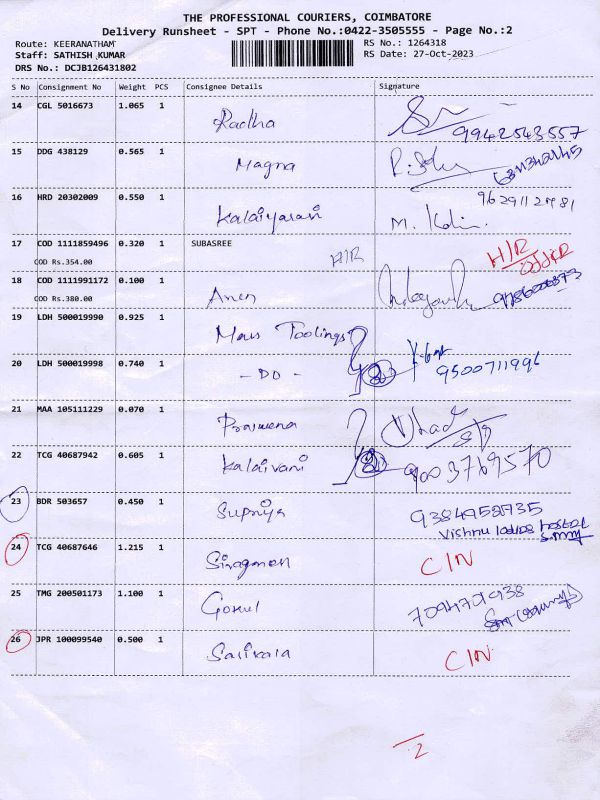 THE PROFESSIONAL COURIERS, COIMBATORE
Delivery Runsheet - SPT - Phone No.:0422-3505555 - Page No.:2
Route: KEERANATHAM
Staff: SATHISH KUMAR
DRS No.: DCJB126431802
RS No.: 1264318
RS Date: 27-Oct-2023
S No Consignment No Weight PCS Consignee Details Signature
14 CGL 5016673 1.065 1 Radha
9942543557
15 DDG 438129 0.565 1 Magna
16 HRD 20302009 0.550 1 Kalaiyarasi
17 COD 1111859496 0.320 1 SUBASREE H/R H/R
COD Rs.354.00
18 COD 1111991172 0.100 1
COD Rs.380.00
19 LDH 500019990 0.925 1 Mars Toolings
20 LDH 500019998 0.740 1 - DO - 9500711996
21 MAA 105111229 0.070 1
22 TCG 40687942 0.605 1 Kalaivani 9003769570
23 BDR 503657 0.450 1 Supriya 9384958735
Vishnu ladies hostel
24 TCG 40687646 1.215 1 CIN
25 TMG 200501173 1.100 1 Gokul
26 JPR 100099540 0.500 1 Sasikala CIN
2